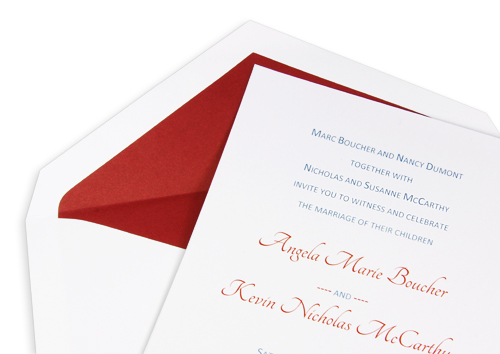 MARC BOUCHER AND NANCY DUMONT
TOGETHER WITH
NICHOLAS AND SUSANNE MCCARTHY
INVITE YOU TO WITNESS AND CELEBRATE
THE MARRIAGE OF THEIR CHILDREN
Angela Marie Boucher
---- AND ----
Kevin Nicholas McCarthy